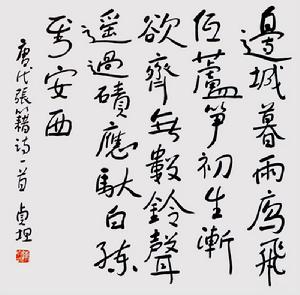 邊城暮雨鴈飛
低蘆笋初生漸
欲齊無數鈴聲
遥過磧應馱白練
到安西
唐代張籍詩一首 貞理